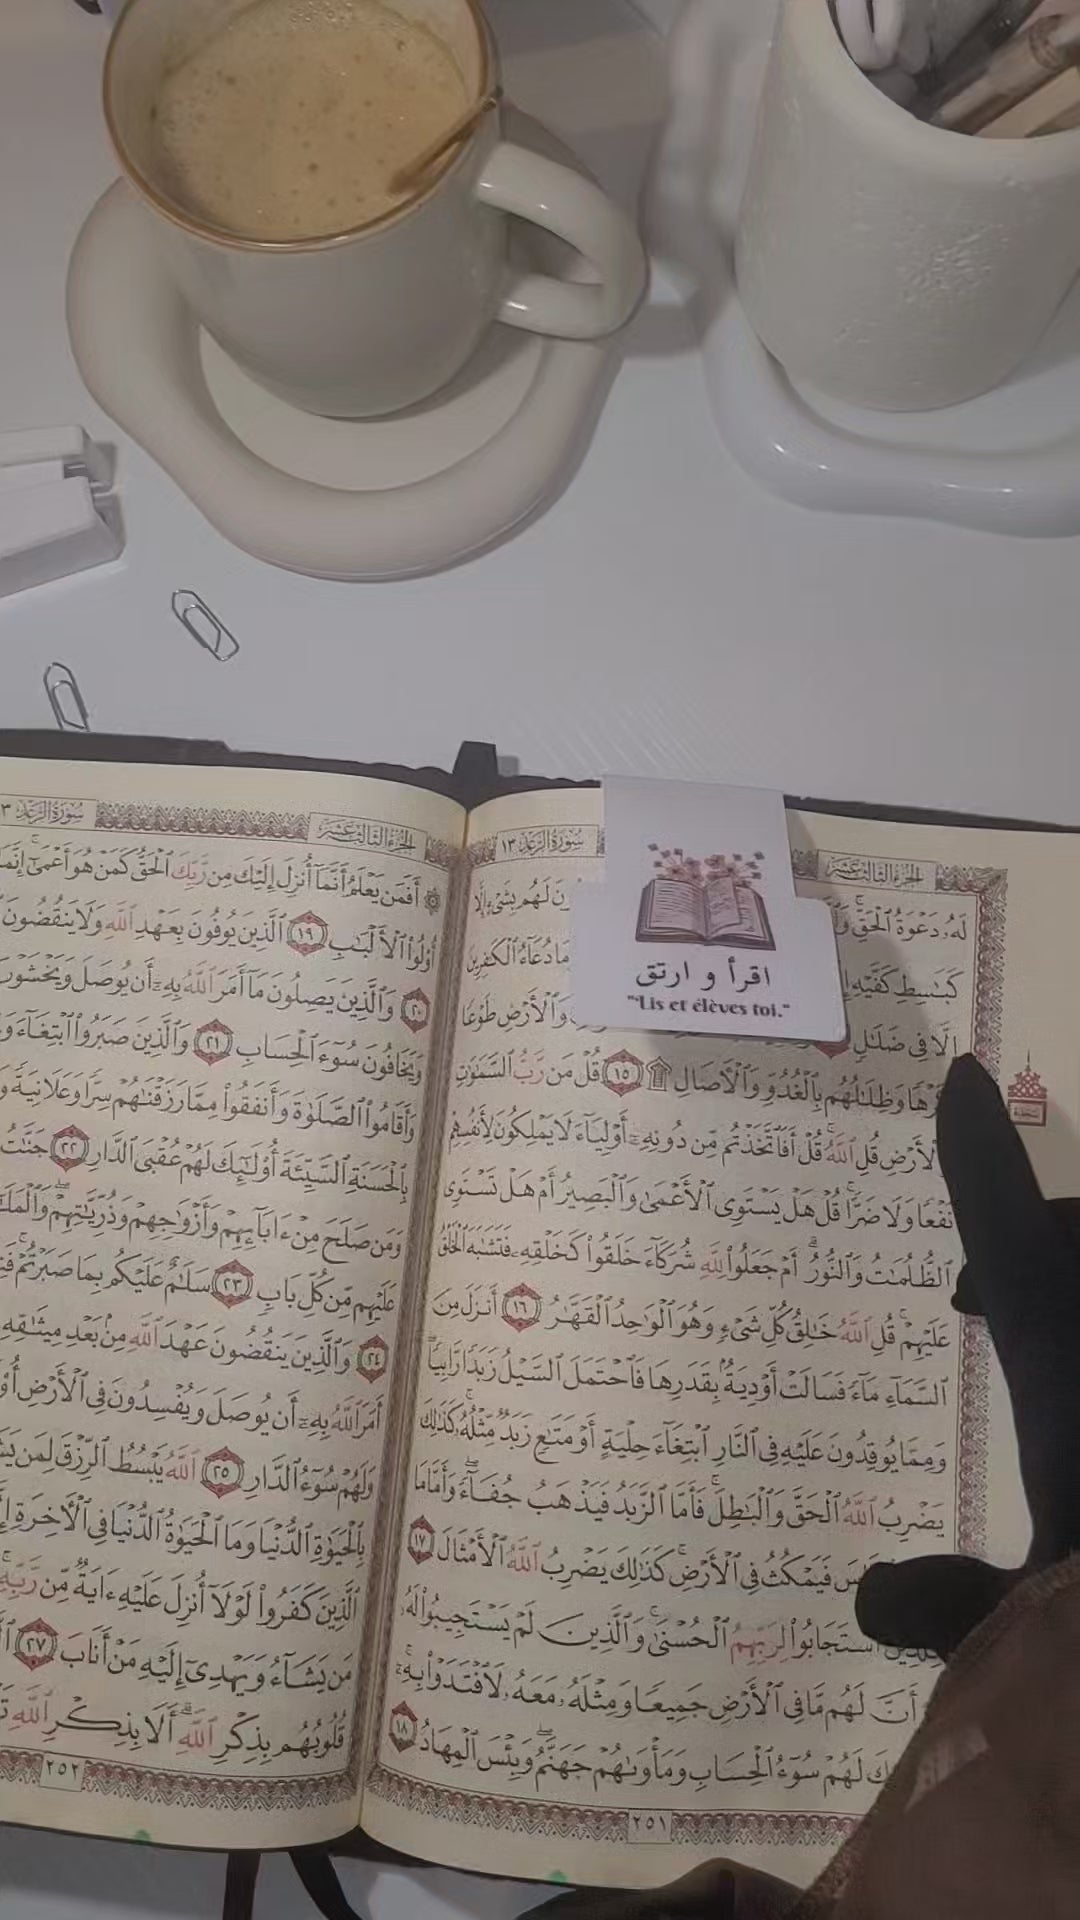 سُورَةُ الرَّعْدِ ١٣
الجُزْءُ الثَّالِثَ عَشَرَ
لَهُۥ دَعْوَةُ ٱلْحَقِّ
ونَ لَهُم بِشَىْءٍ إِلَّا
كَبَٰسِطِ كَفَّيْهِ
مَا دُعَآءُ ٱلْكَٰفِرِينَ
إِلَّا فِى ضَلَٰلٍ
وَٱلْأَرْضِ طَوْعًا
رْهًا وَظِلَٰلُهُم بِٱلْغُدُوِّ وَٱلْءَاصَالِ ۩ ١٥ قُلْ مَن رَّبُّ ٱلسَّمَٰوَٰتِ
ٱلْأَرْضِ قُلِ ٱللَّهُ ۚ قُلْ أَفَٱتَّخَذْتُم مِّن دُونِهِۦٓ أَوْلِيَآءَ لَا يَمْلِكُونَ لِأَنفُسِهِمْ
نَفْعًا وَلَا ضَرًّا ۚ قُلْ هَلْ يَسْتَوِى ٱلْأَعْمَىٰ وَٱلْبَصِيرُ أَمْ هَلْ تَسْتَوِى
ٱلظُّلُمَٰتُ وَٱلنُّورُ ۗ أَمْ جَعَلُوا۟ لِلَّهِ شُرَكَآءَ خَلَقُوا۟ كَخَلْقِهِۦ فَتَشَٰبَهَ ٱلْخَلْقُ
عَلَيْهِمْ ۚ قُلِ ٱللَّهُ خَٰلِقُ كُلِّ شَىْءٍ وَهُوَ ٱلْوَٰحِدُ ٱلْقَهَّٰرُ ١٦ أَنزَلَ مِنَ
ٱلسَّمَآءِ مَآءً فَسَالَتْ أَوْدِيَةٌۢ بِقَدَرِهَا فَٱحْتَمَلَ ٱلسَّيْلُ زَبَدًا رَّابِيًا ۚ
وَمِمَّا يُوقِدُونَ عَلَيْهِ فِى ٱلنَّارِ ٱبْتِغَآءَ حِلْيَةٍ أَوْ مَتَٰعٍ زَبَدٌ مِّثْلُهُۥ ۚ كَذَٰلِكَ
يَضْرِبُ ٱللَّهُ ٱلْحَقَّ وَٱلْبَٰطِلَ ۚ فَأَمَّا ٱلزَّبَدُ فَيَذْهَبُ جُفَآءً ۖ وَأَمَّا مَا
اسَ فَيَمْكُثُ فِى ٱلْأَرْضِ ۚ كَذَٰلِكَ يَضْرِبُ ٱللَّهُ ٱلْأَمْثَالَ ١٧
لِلَّذِينَ ٱسْتَجَابُوا۟ لِرَبِّهِمُ ٱلْحُسْنَىٰ ۚ وَٱلَّذِينَ لَمْ يَسْتَجِيبُوا۟ لَهُۥ
أَنَّ لَهُم مَّا فِى ٱلْأَرْضِ جَمِيعًا وَمِثْلَهُۥ مَعَهُۥ لَٱفْتَدَوْا۟ بِهِۦٓ ۚ
كَ لَهُمْ سُوٓءُ ٱلْحِسَابِ وَمَأْوَىٰهُمْ جَهَنَّمُ ۖ وَبِئْسَ ٱلْمِهَادُ ١٨
٢٥١
اقرأ و ارتق
"Lis et élèves toi."
الجُزْءُ الثَّالِثَ عَشَرَ
سُورَةُ الرَّعْدِ
۞ أَفَمَن يَعْلَمُ أَنَّمَآ أُنزِلَ إِلَيْكَ مِن رَّبِّكَ ٱلْحَقُّ كَمَنْ هُوَ أَعْمَىٰٓ ۚ إِنَّمَا
أُو۟لُوا۟ ٱلْأَلْبَٰبِ ١٩ ٱلَّذِينَ يُوفُونَ بِعَهْدِ ٱللَّهِ وَلَا يَنقُضُونَ
٢٠ وَٱلَّذِينَ يَصِلُونَ مَآ أَمَرَ ٱللَّهُ بِهِۦٓ أَن يُوصَلَ وَيَخْشَوْنَ
وَيَخَافُونَ سُوٓءَ ٱلْحِسَابِ ٢١ وَٱلَّذِينَ صَبَرُوا۟ ٱبْتِغَآءَ
وَأَقَامُوا۟ ٱلصَّلَوٰةَ وَأَنفَقُوا۟ مِمَّا رَزَقْنَٰهُمْ سِرًّا وَعَلَانِيَةً
بِٱلْحَسَنَةِ ٱلسَّيِّئَةَ أُو۟لَٰٓئِكَ لَهُمْ عُقْبَى ٱلدَّارِ ٢٢ جَنَّٰتُ
وَمَن صَلَحَ مِنْ ءَابَآئِهِمْ وَأَزْوَٰجِهِمْ وَذُرِّيَّٰتِهِمْ ۖ وَٱلْمَلَ
عَلَيْهِم مِّن كُلِّ بَابٍ ٢٣ سَلَٰمٌ عَلَيْكُم بِمَا صَبَرْتُمْ ۚ
٢٤ وَٱلَّذِينَ يَنقُضُونَ عَهْدَ ٱللَّهِ مِنۢ بَعْدِ مِيثَٰقِهِۦ
أَمَرَ ٱللَّهُ بِهِۦٓ أَن يُوصَلَ وَيُفْسِدُونَ فِى ٱلْأَرْضِ ۙ
وَلَهُمْ سُوٓءُ ٱلدَّارِ ٢٥ ٱللَّهُ يَبْسُطُ ٱلرِّزْقَ لِمَن
بِٱلْحَيَوٰةِ ٱلدُّنْيَا وَمَا ٱلْحَيَوٰةُ ٱلدُّنْيَا فِى ٱلْءَاخِرَةِ
ٱلَّذِينَ كَفَرُوا۟ لَوْلَآ أُنزِلَ عَلَيْهِ ءَايَةٌ مِّن رَّبِّهِۦ ۗ
مَن يَشَآءُ وَيَهْدِىٓ إِلَيْهِ مَنْ أَنَابَ ٢٧
قُلُوبُهُم بِذِكْرِ ٱللَّهِ ۗ أَلَا بِذِكْرِ ٱللَّهِ
٢٥٢